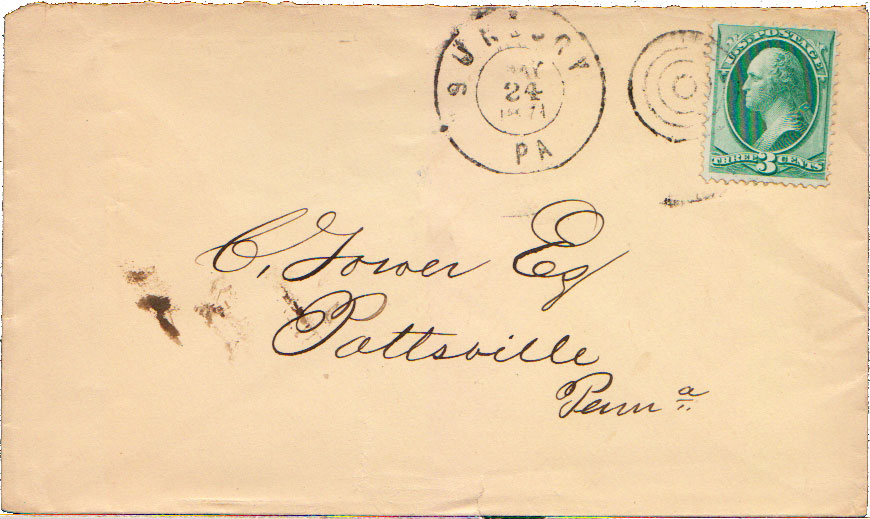 SUNBURY
MAY
24
PA
U.S. POSTAGE
THREE 3 CENTS
C. Tower Esq
Pottsville
Penn a